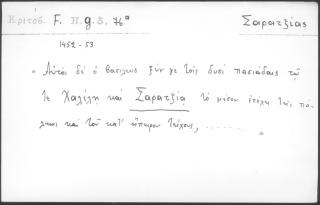 Κριτόβ. F. H. g. S, 76ᵃ
Σαρατζίας
1452-53
"Αὐτὸς δὲ ὁ βασιλεὺς ξύν γε τοῖς δυσὶ πασιάδαις τῷ
τε Χαλίλῃ καὶ Σαρατζίᾳ τὸ μέσον ἐπέχῃ τῆς πό-
λεως καὶ τοῦ κατ' ἤπειρον τείχους, ........